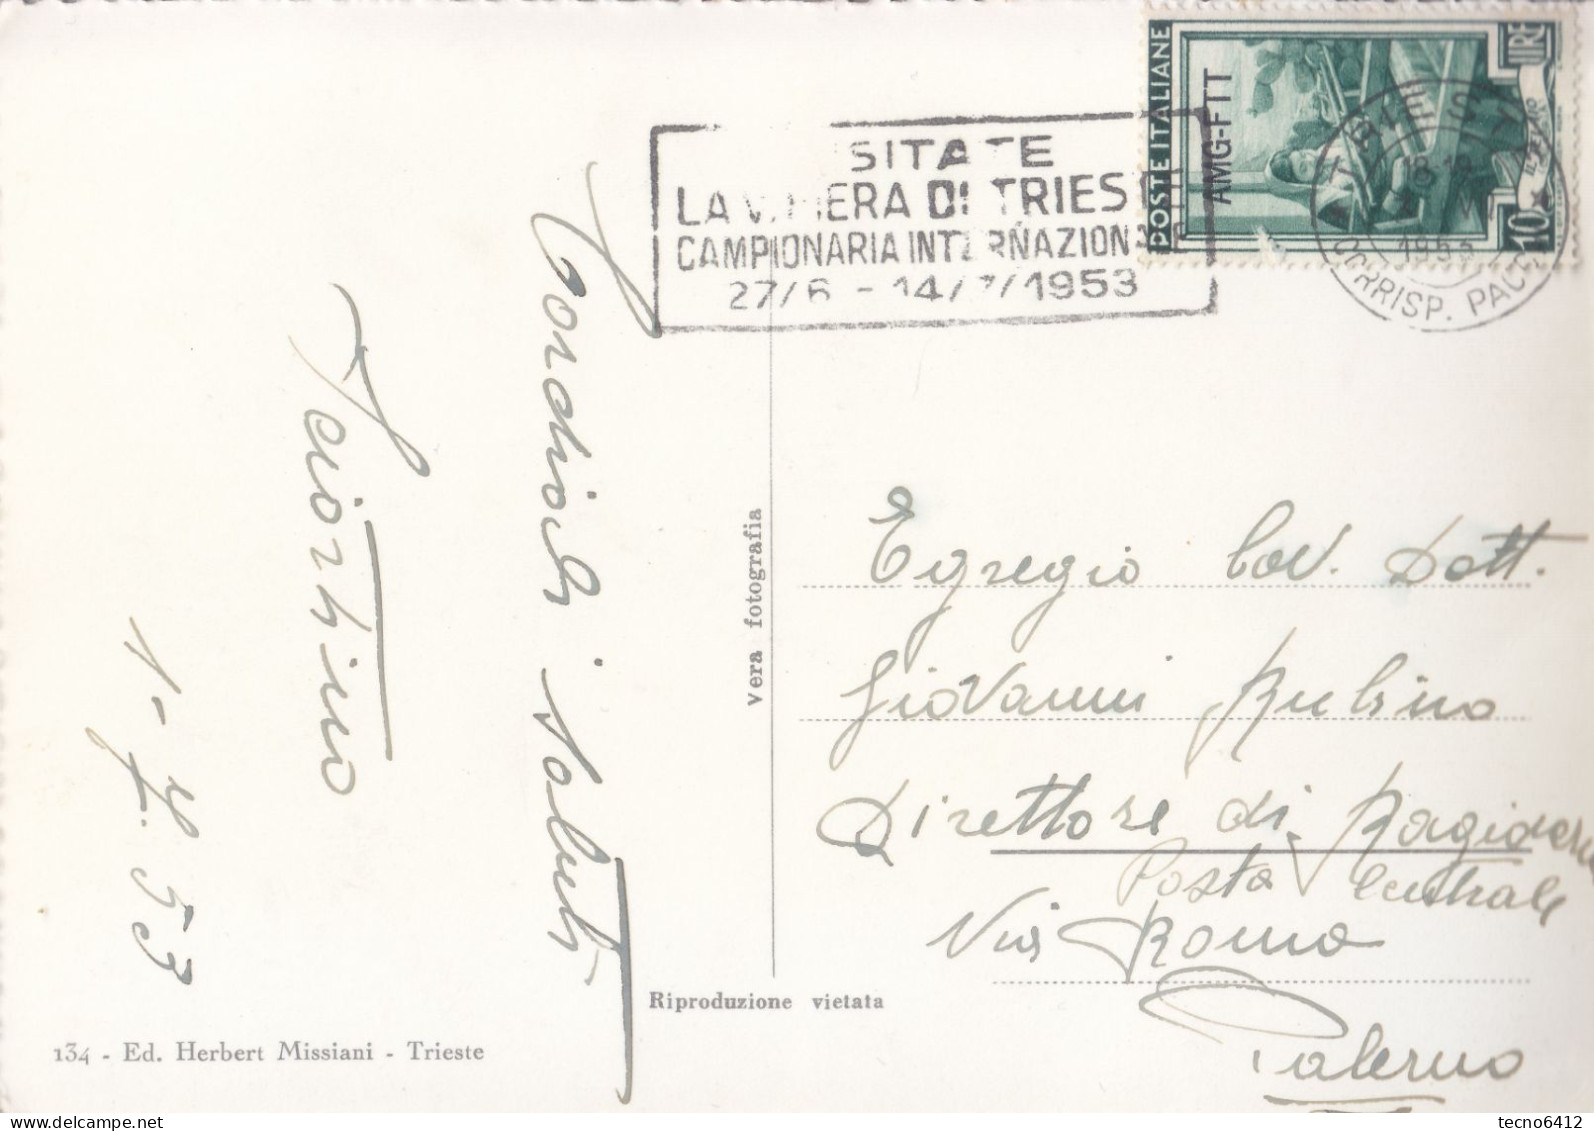 POSTE ITALIANE
AMG-FTT
LIRE
10
SITATE
LA V FIERA DI TRIEST
CAMPIONARIA INTERNAZIONA
27/6 - 14/7/1953
1953
CORRISP. PACC
Cordiali saluti
1-7.53
vera fotografia
Egregio Cav. Dott.
Giovanni Rubino
Direttore di Ragioneria
Posta Centrale
Via Roma
Palermo
Riproduzione vietata
134 - Ed. Herbert Missiani - Trieste
tecno6412